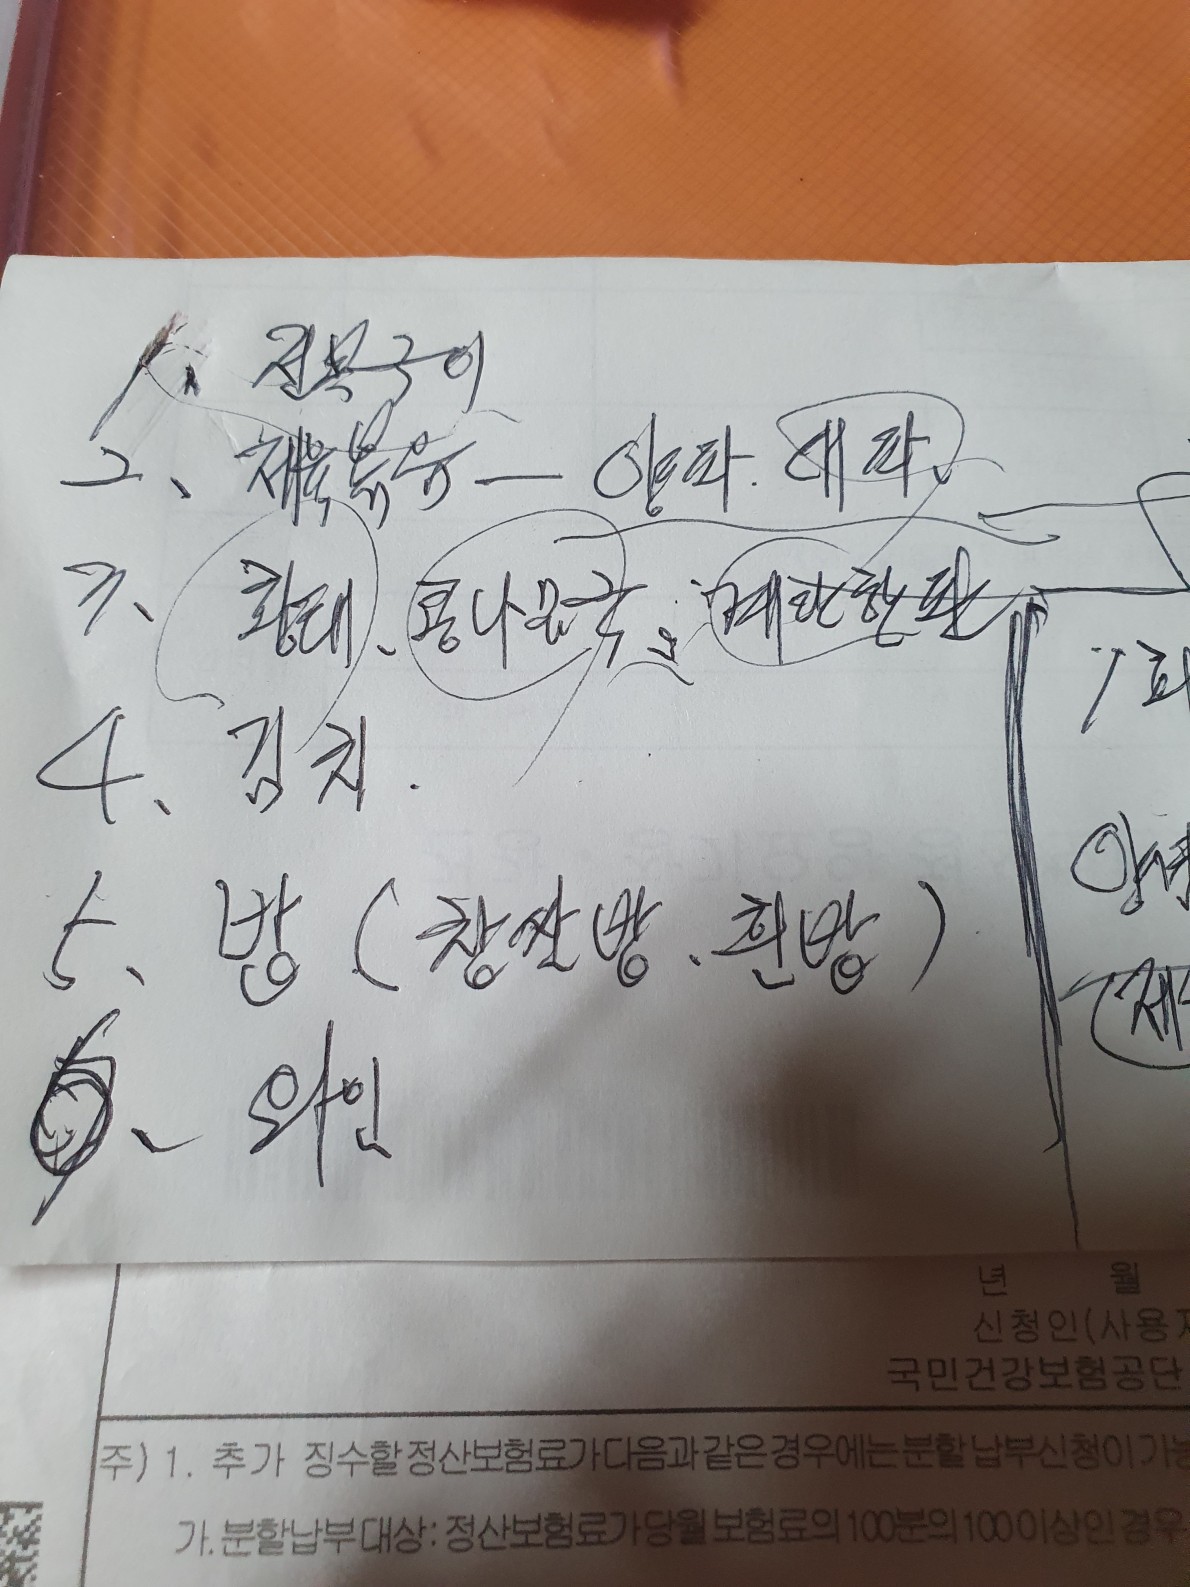 1. 전복구이
2、제육볶음 — 양파. 대파.
3、황태、콩나물국、계란한판
1회
4、김치.
양념
5、방 (찹쌀방.흰방)
제육
、와인
년 월
신청인(사용자
국민건강보험공단
주) 1. 추가 징수할 정산보험료가 다음과 같은 경우에는 분할 납부신청이 가능
가.분할납부 대상: 정산보험료가 당월 보험료의 100분의 100 이상인 경우